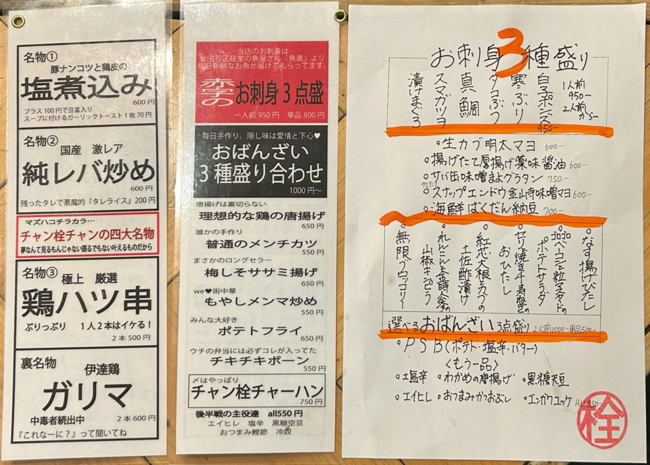 名物①
豚ナンコツと鶏皮の
塩煮込み
600円
プラス100円で豆富入り
スープに付けるガーリックトースト1枚70円
名物②
国産 激レア
純レバ炒め
600円
残ったタレで悪魔的「タレライス」200円
マズハコチラカラ…
チャン栓チャンの四大名物
夢なんて見るもんじゃない語るでもない叶えるものだから
名物③
極上 厳選
鶏ハツ串
ぷりっぷり 1人2本はイケる!
2本500円
裏名物
伊達鶏
ガリマ
中毒者続出中 2本600円
『これなーに?』って聞いてね
当店のお刺身は
世田谷区経堂の魚屋さん「魚真」より
毎日新鮮なお魚が届いてもらってます。
赤字の
お刺身3点盛
一人前950円 単品800円
毎日手作り、隠し味は愛情と下心♥
おばんざい
3種盛り合わせ
1000円~
唐揚げは裏切らない
理想的な鶏の唐揚げ
650円
誰かの手作り
普通のメンチカツ
550円
まさかのロングセラー
梅しそササミ揚げ
650円
we♥街中華
もやしメンマ炒め
550円
みんな大好き
ポテトフライ
650円
ウチの弁当には必ずコレが入ってた
チキチキボーン
550円
〆はやっぱり
チャン栓チャーハン
750円
後半戦の主役達 all550円
エイヒレ 塩辛 黒糖空豆
おつまみ鰹節 冷奴
お刺身3種盛り
1人前
950-
2人前
から-
白子ポンズ 950-
寒ぶり
タコぶつ
真鯛
スマガツヲ
漬けまぐろ
•生カブ明太マヨ 600-
•揚げたて厚揚げ薬味醤油 600-
•サバ缶味噌まよグラタン 750-
•スナップエンドウ金山寺味噌マヨ 600-
•海鮮ばくだん納豆 700-
•なす揚げびたし
ポテトサラダ
おひたし
•紅芯大根とカブの
土佐酢漬け
山椒キンピラ
•無限ブロッコリー
選べるおばんざい3点盛り 2人前1000- 単品500-
•PSB(ポテト・塩辛・バター)
〈もう一品〉
•塩辛 •わかめの唐揚げ •黒糖空豆
•エイヒレ •おつまみかつおぶし •エンガワユッケ All550-
栓